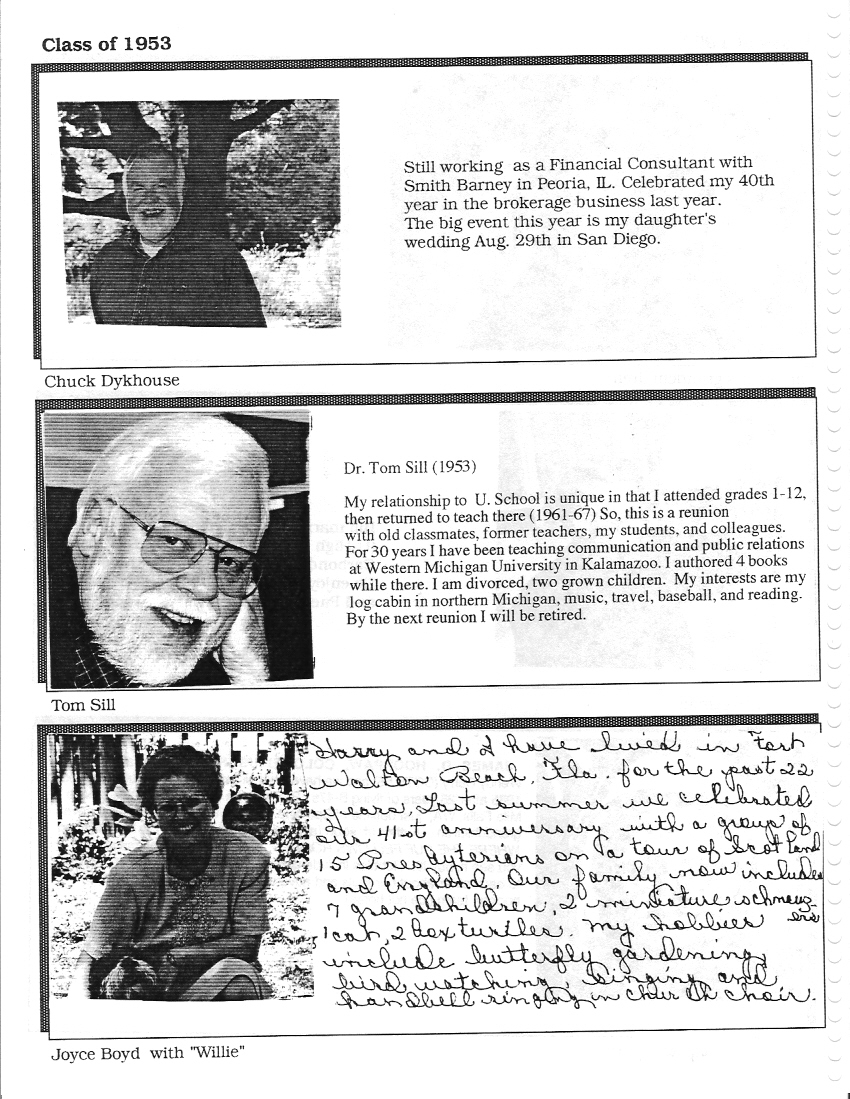 Class of 1953
Still working as a Financial Consultant with
Smith Barney in Peoria, IL. Celebrated my 40th
year in the brokerage business last year.
The big event this year is my daughter's
wedding Aug. 29th in San Diego.
Chuck Dykhouse
Dr. Tom Sill (1953)
My relationship to U. School is unique in that I attended grades 1-12,
then returned to teach there (1961-67) So, this is a reunion
with old classmates, former teachers, my students, and colleagues.
For 30 years I have been teaching communication and public relations
at Western Michigan University in Kalamazoo. I authored 4 books
while there. I am divorced, two grown children. My interests are my
log cabin in northern Michigan, music, travel, baseball, and reading.
By the next reunion I will be retired.
Tom Sill
Harry and I have lived in Fort
Walton Beach, Fla. for the past 22
years. Last summer we celebrated
our 41st anniversary with a group of
15 Presbyterians on a tour of Scotland
and England. Our family now includes
7 grandchildren, 2 miniature schnauz
ers
1 cat, 2 box turtles. My hobbies
include butterfly gardening,
bird watching, singing and
handbell ringing in church choir.
Joyce Boyd with "Willie"